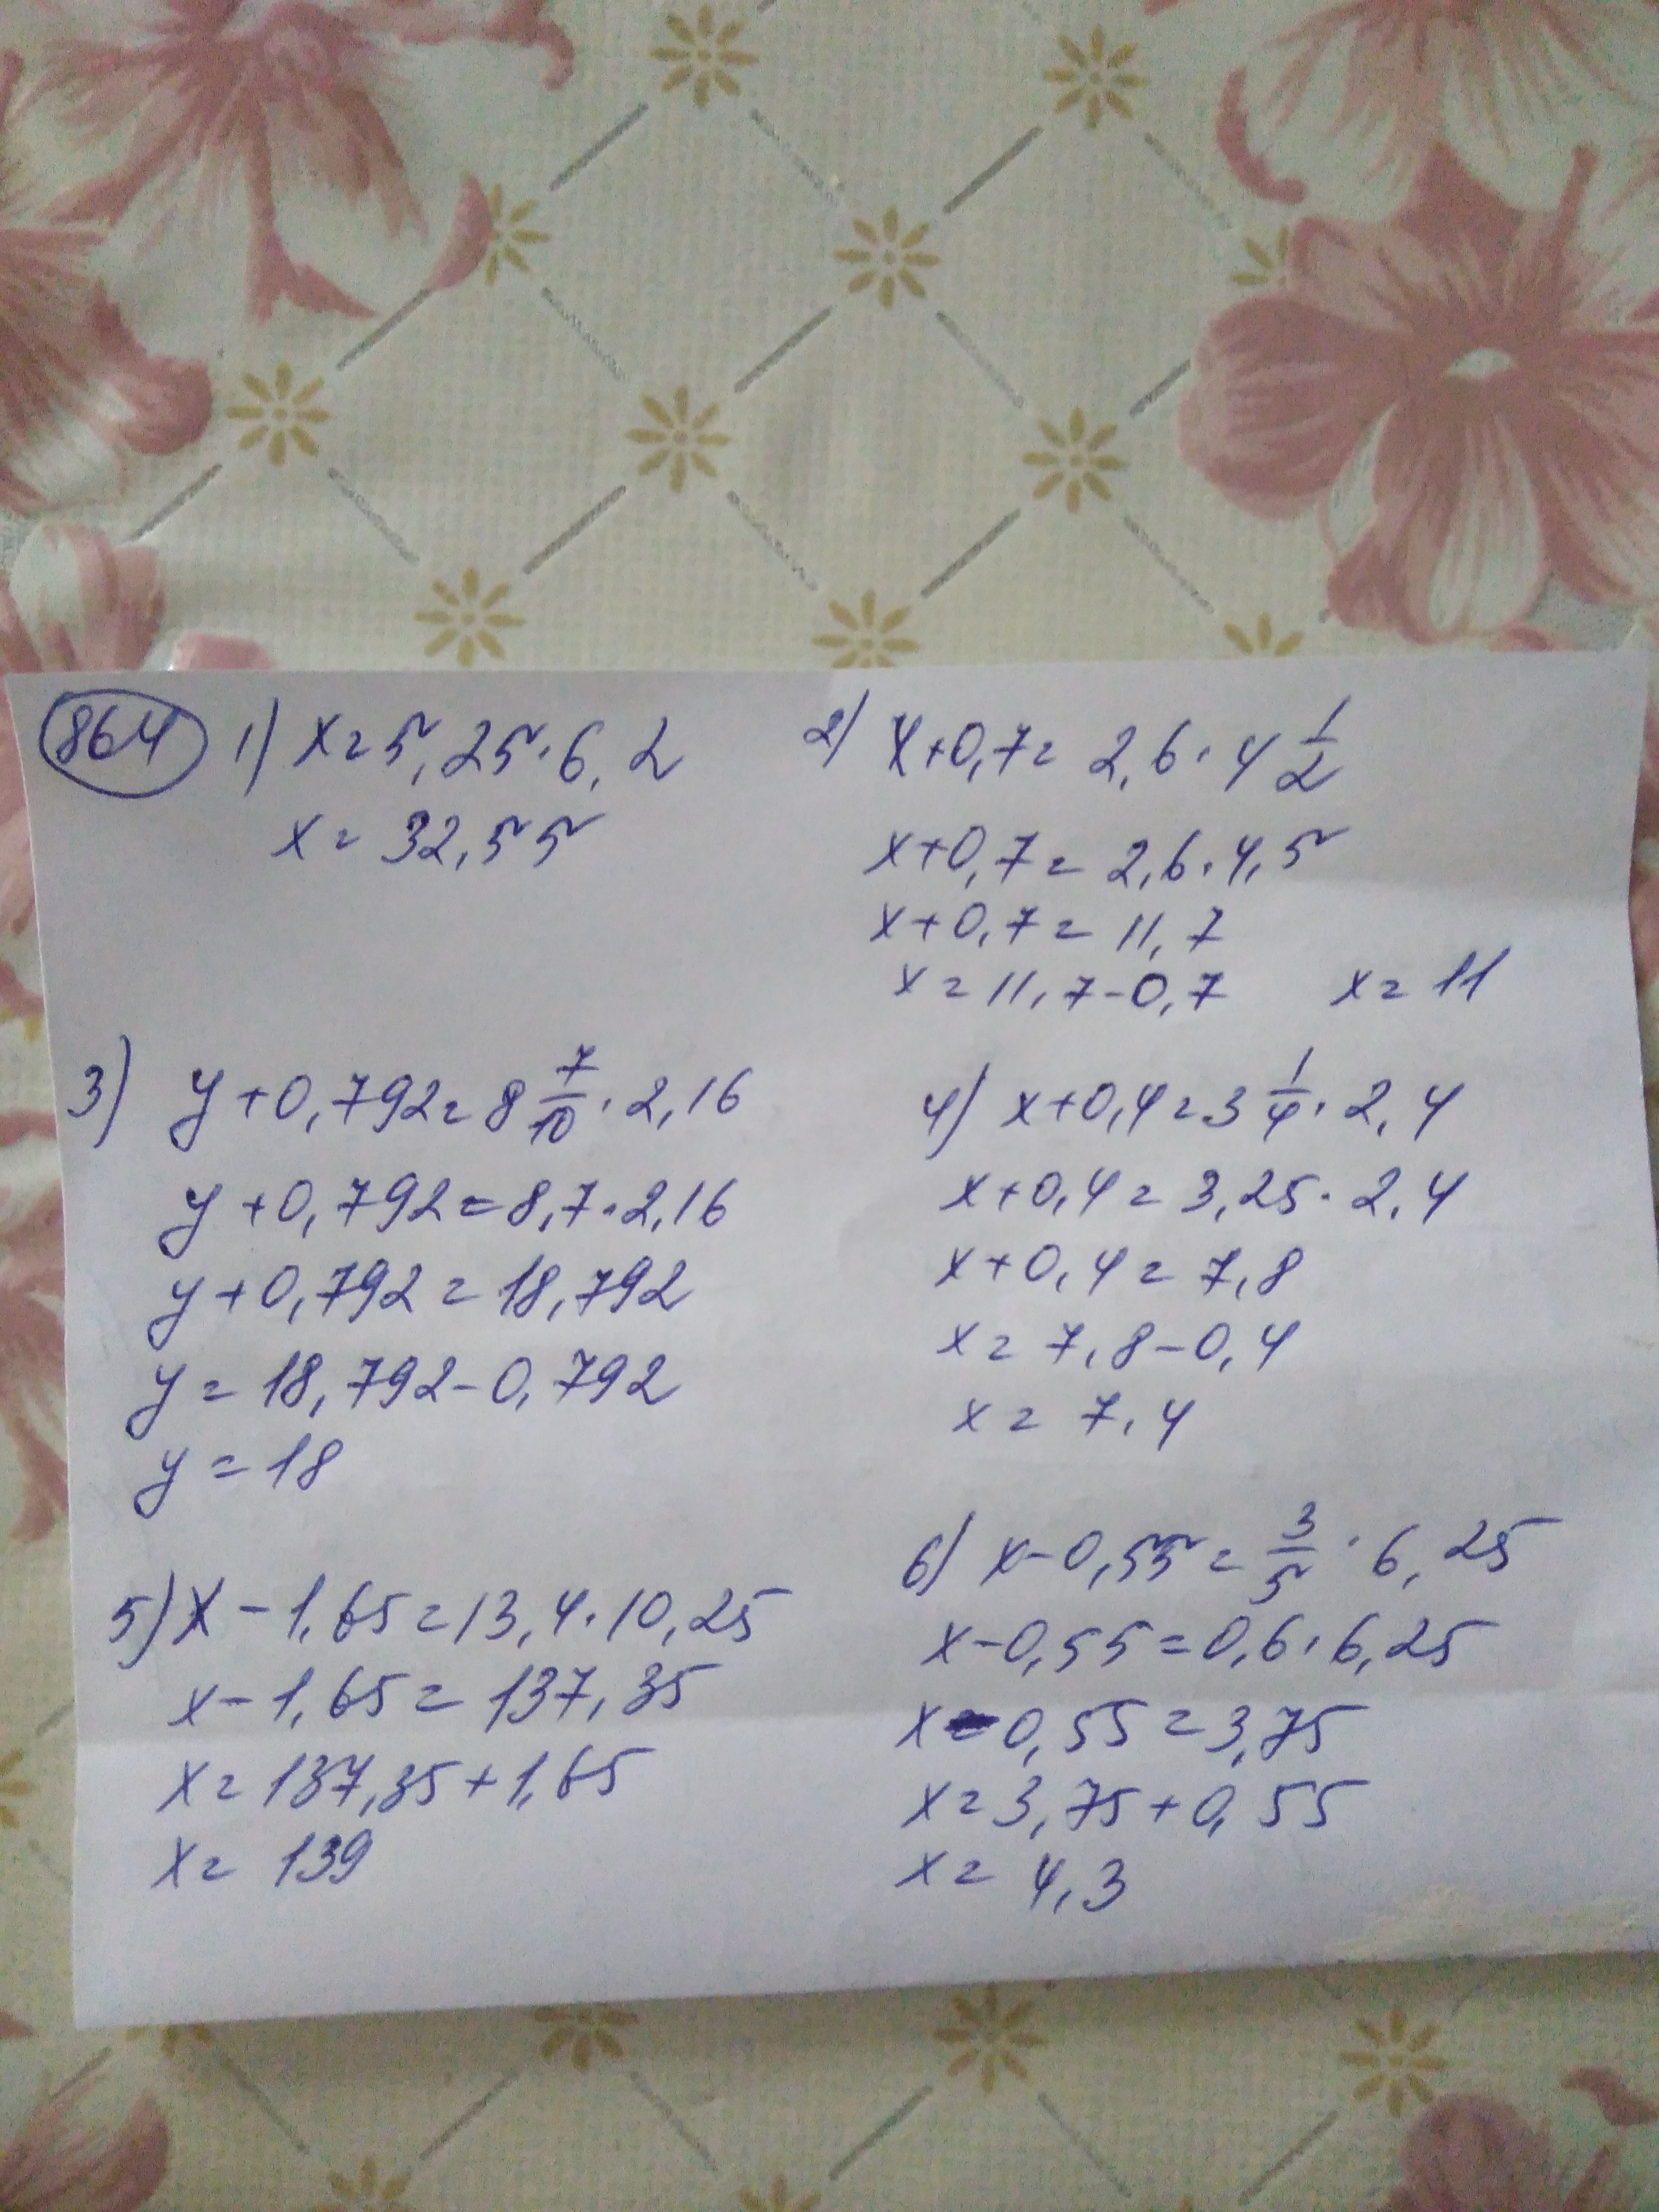 864 1) x = 5,25 · 6,2
x = 32,55
2) x + 0,7 = 2,6 · 4 1/2
x + 0,7 = 2,6 · 4,5
x + 0,7 = 11,7
x = 11,7 - 0,7 x = 11
3) y + 0,792 = 8 7/10 · 2,16
y + 0,792 = 8,7 · 2,16
y + 0,792 = 18,792
y = 18,792 - 0,792
y = 18
4) x + 0,4 = 3 1/4 · 2,4
x + 0,4 = 3,25 · 2,4
x + 0,4 = 7,8
x = 7,8 - 0,4
x = 7,4
5) x - 1,65 = 13,4 · 10,25
x - 1,65 = 137,35
x = 137,35 + 1,65
x = 139
6) x - 0,55 = 3/5 · 6,25
x - 0,55 = 0,6 · 6,25
x - 0,55 = 3,75
x = 3,75 + 0,55
x = 4,3